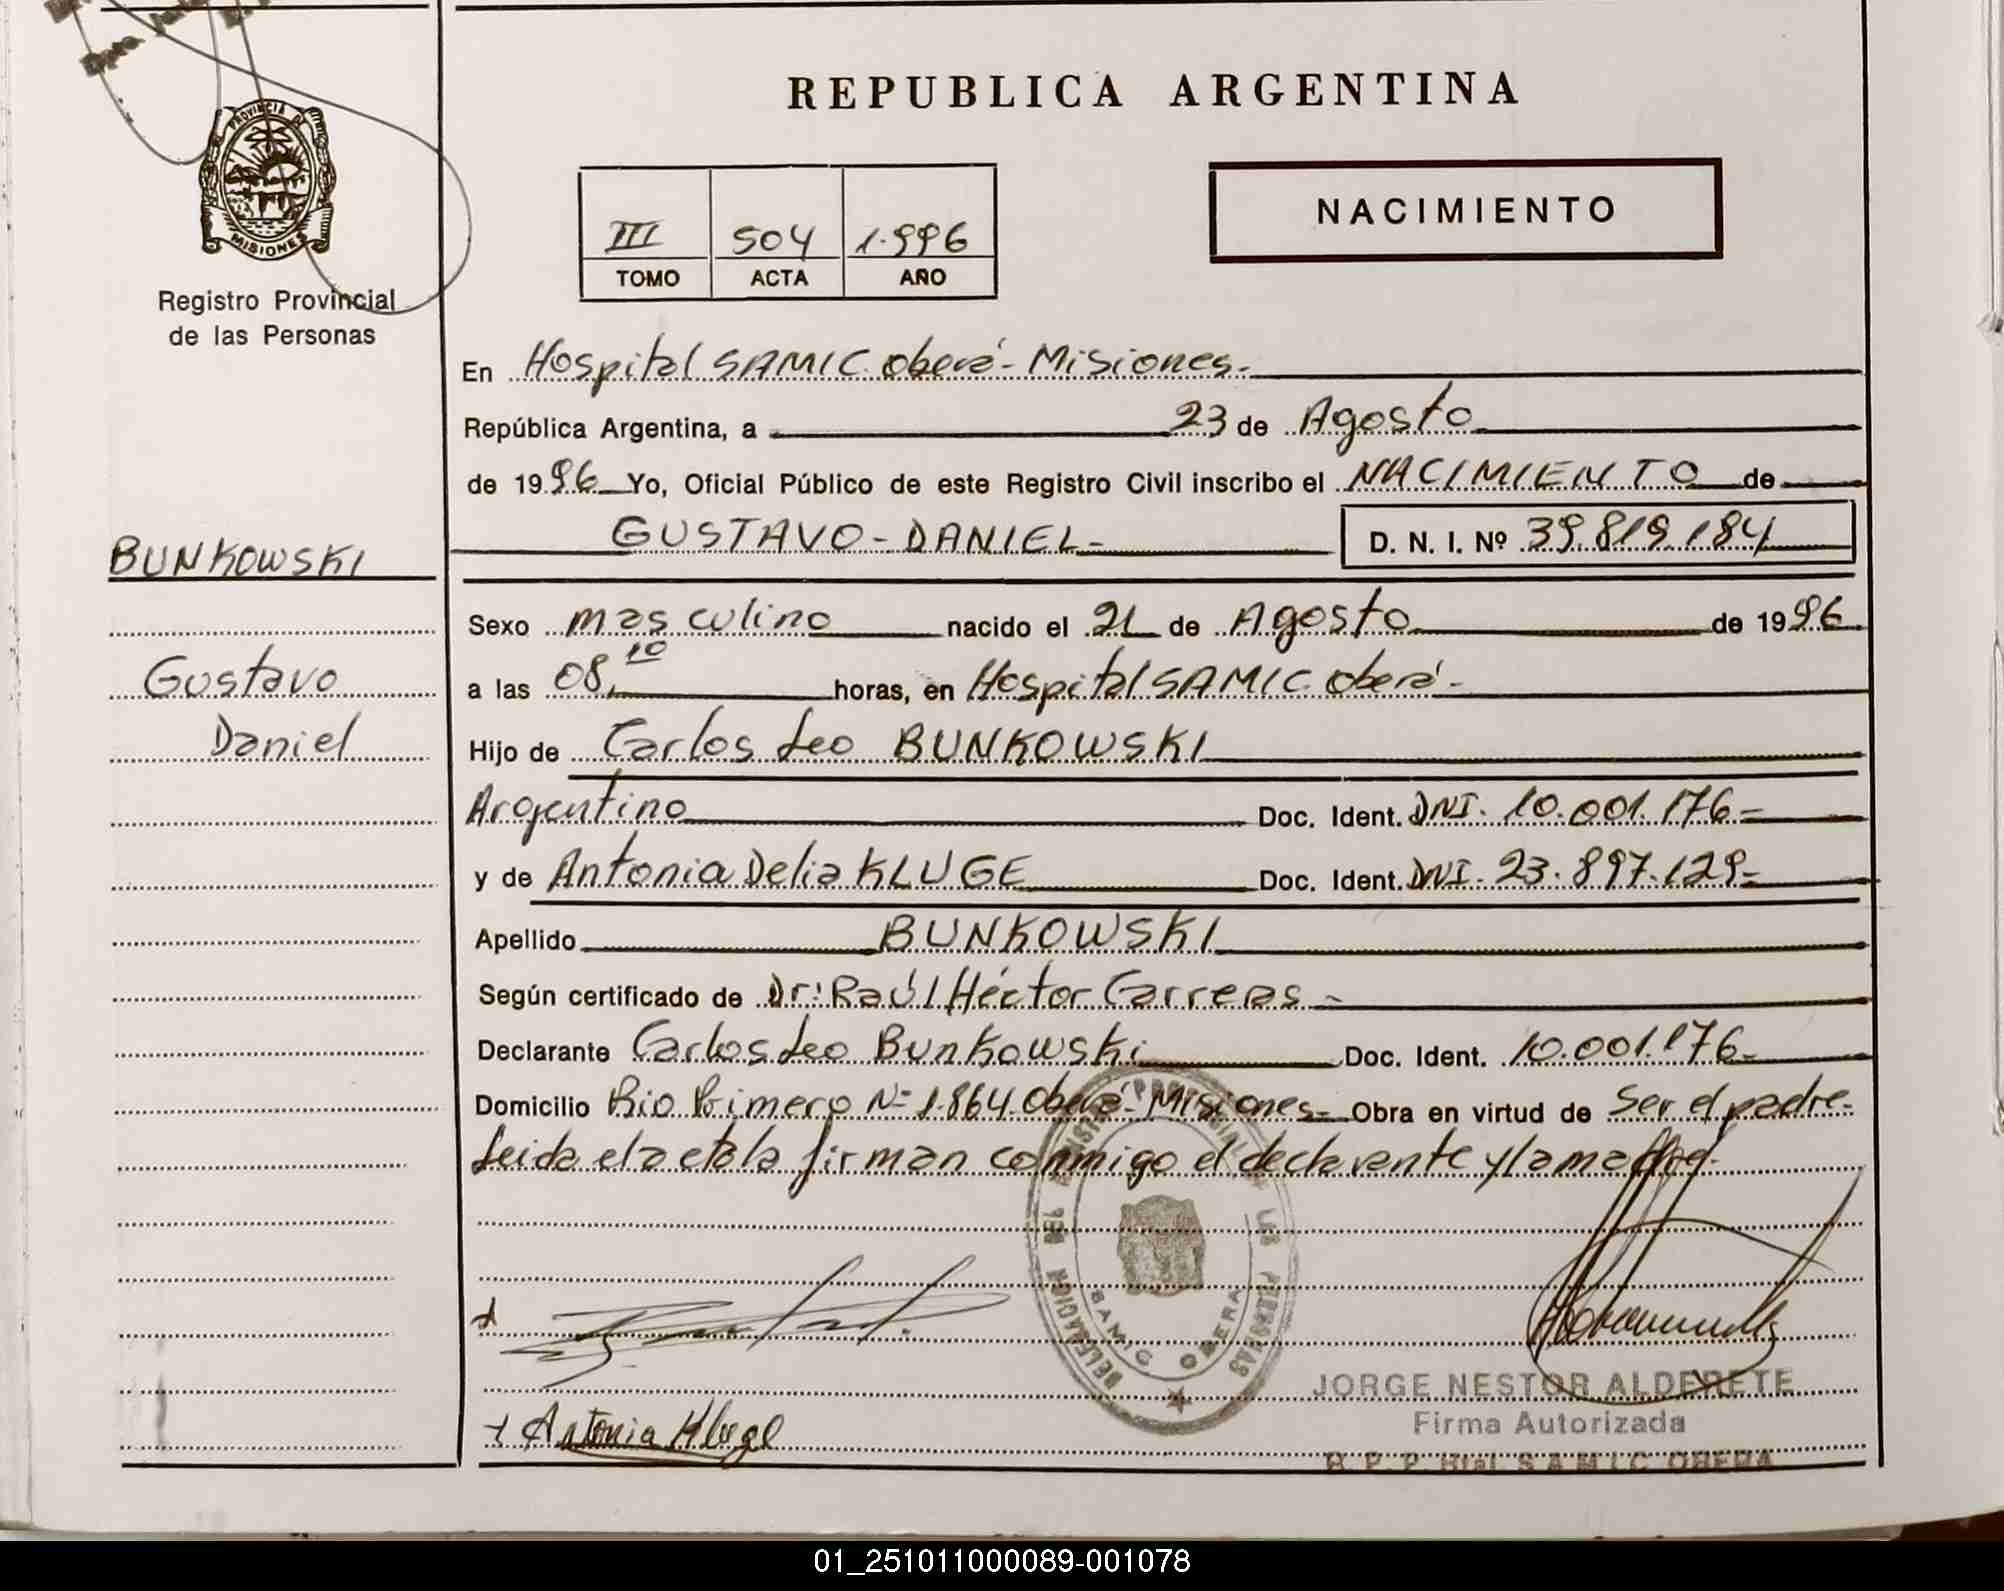 REPUBLICA ARGENTINA
PROVINCIA DE
MISIONES
Registro Provincial
de las Personas
III 504 1.996
TOMO ACTA AÑO
NACIMIENTO
En Hospital SAMIC. Oberá - Misiones.
República Argentina, a 23 de Agosto
de 1996 Yo, Oficial Público de este Registro Civil inscribo el NACIMIENTO de
GUSTAVO - DANIEL - D. N. I. Nº 39.819.184
BUNKOWSKI
Gustavo
Daniel
Sexo masculino nacido el 21 de Agosto de 1996
a las 08,10 horas, en Hospital SAMIC. Oberá -
Hijo de Carlos Leo BUNKOWSKI
Argentino Doc. Ident. DNI. 10.001.176 -
y de Antonia Delia KLUGE Doc. Ident. DNI. 23.897.129 -
Apellido BUNKOWSKI
Según certificado de Dr: Raúl Héctor Carreras -
Declarante Carlos Leo Bunkowski Doc. Ident. 10.001.176 -
Domicilio Rio Primero Nº 1.864. Oberá - Misiones - Obra en virtud de Ser el padre -
Leida el acta la firman conmigo el declarante y la madre.
DELEGACION DEL REGISTRO PROVINCIAL DE LAS PERSONAS
SAMIC OBERA
Antonia Kluge
JORGE NESTOR ALDERETE
Firma Autorizada
R. P. P. Htal. S A M I C OBERA
01_251011000089-001078